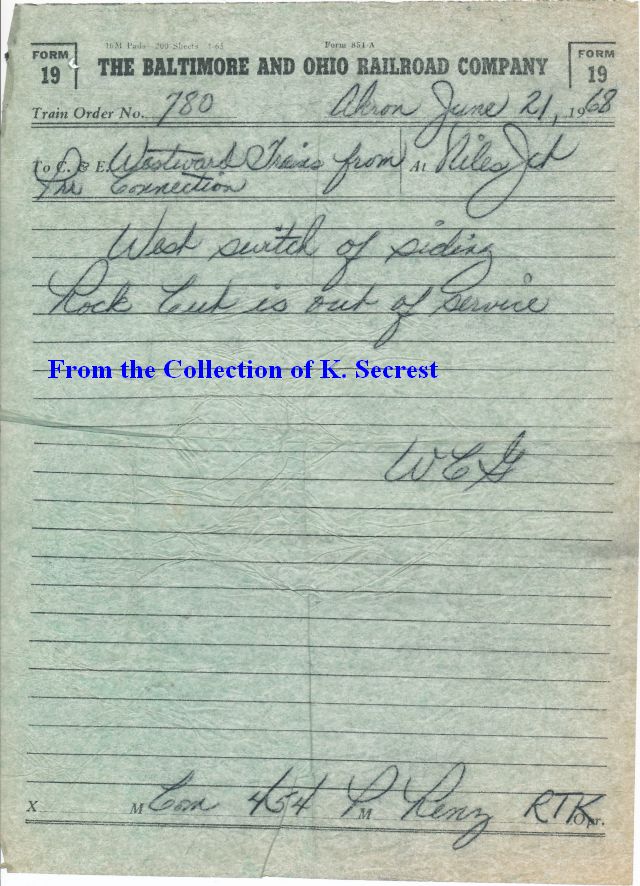 16M Pads 200 Sheets 1-65 Form 851-A
FORM 19 THE BALTIMORE AND OHIO RAILROAD COMPANY FORM 19
Train Order No. 780 Akron June 21, 1968
To C. & E. Westward Trains from At Niles Jct
Connection
West switch of siding
Rock Cut is out of service
From the Collection of K. Secrest
WCG
X M Com 454 P M Renz RTK Opr.